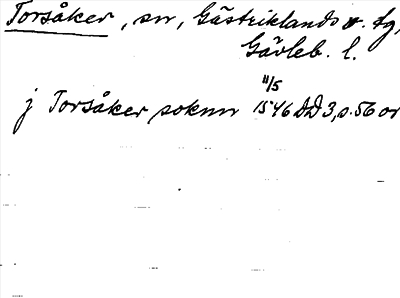 Torsåker, sn, Gästriklands v. tg,
Gävleb. l.
11/5
j Torsåker soknn 1546 DD 3, s. 56 or